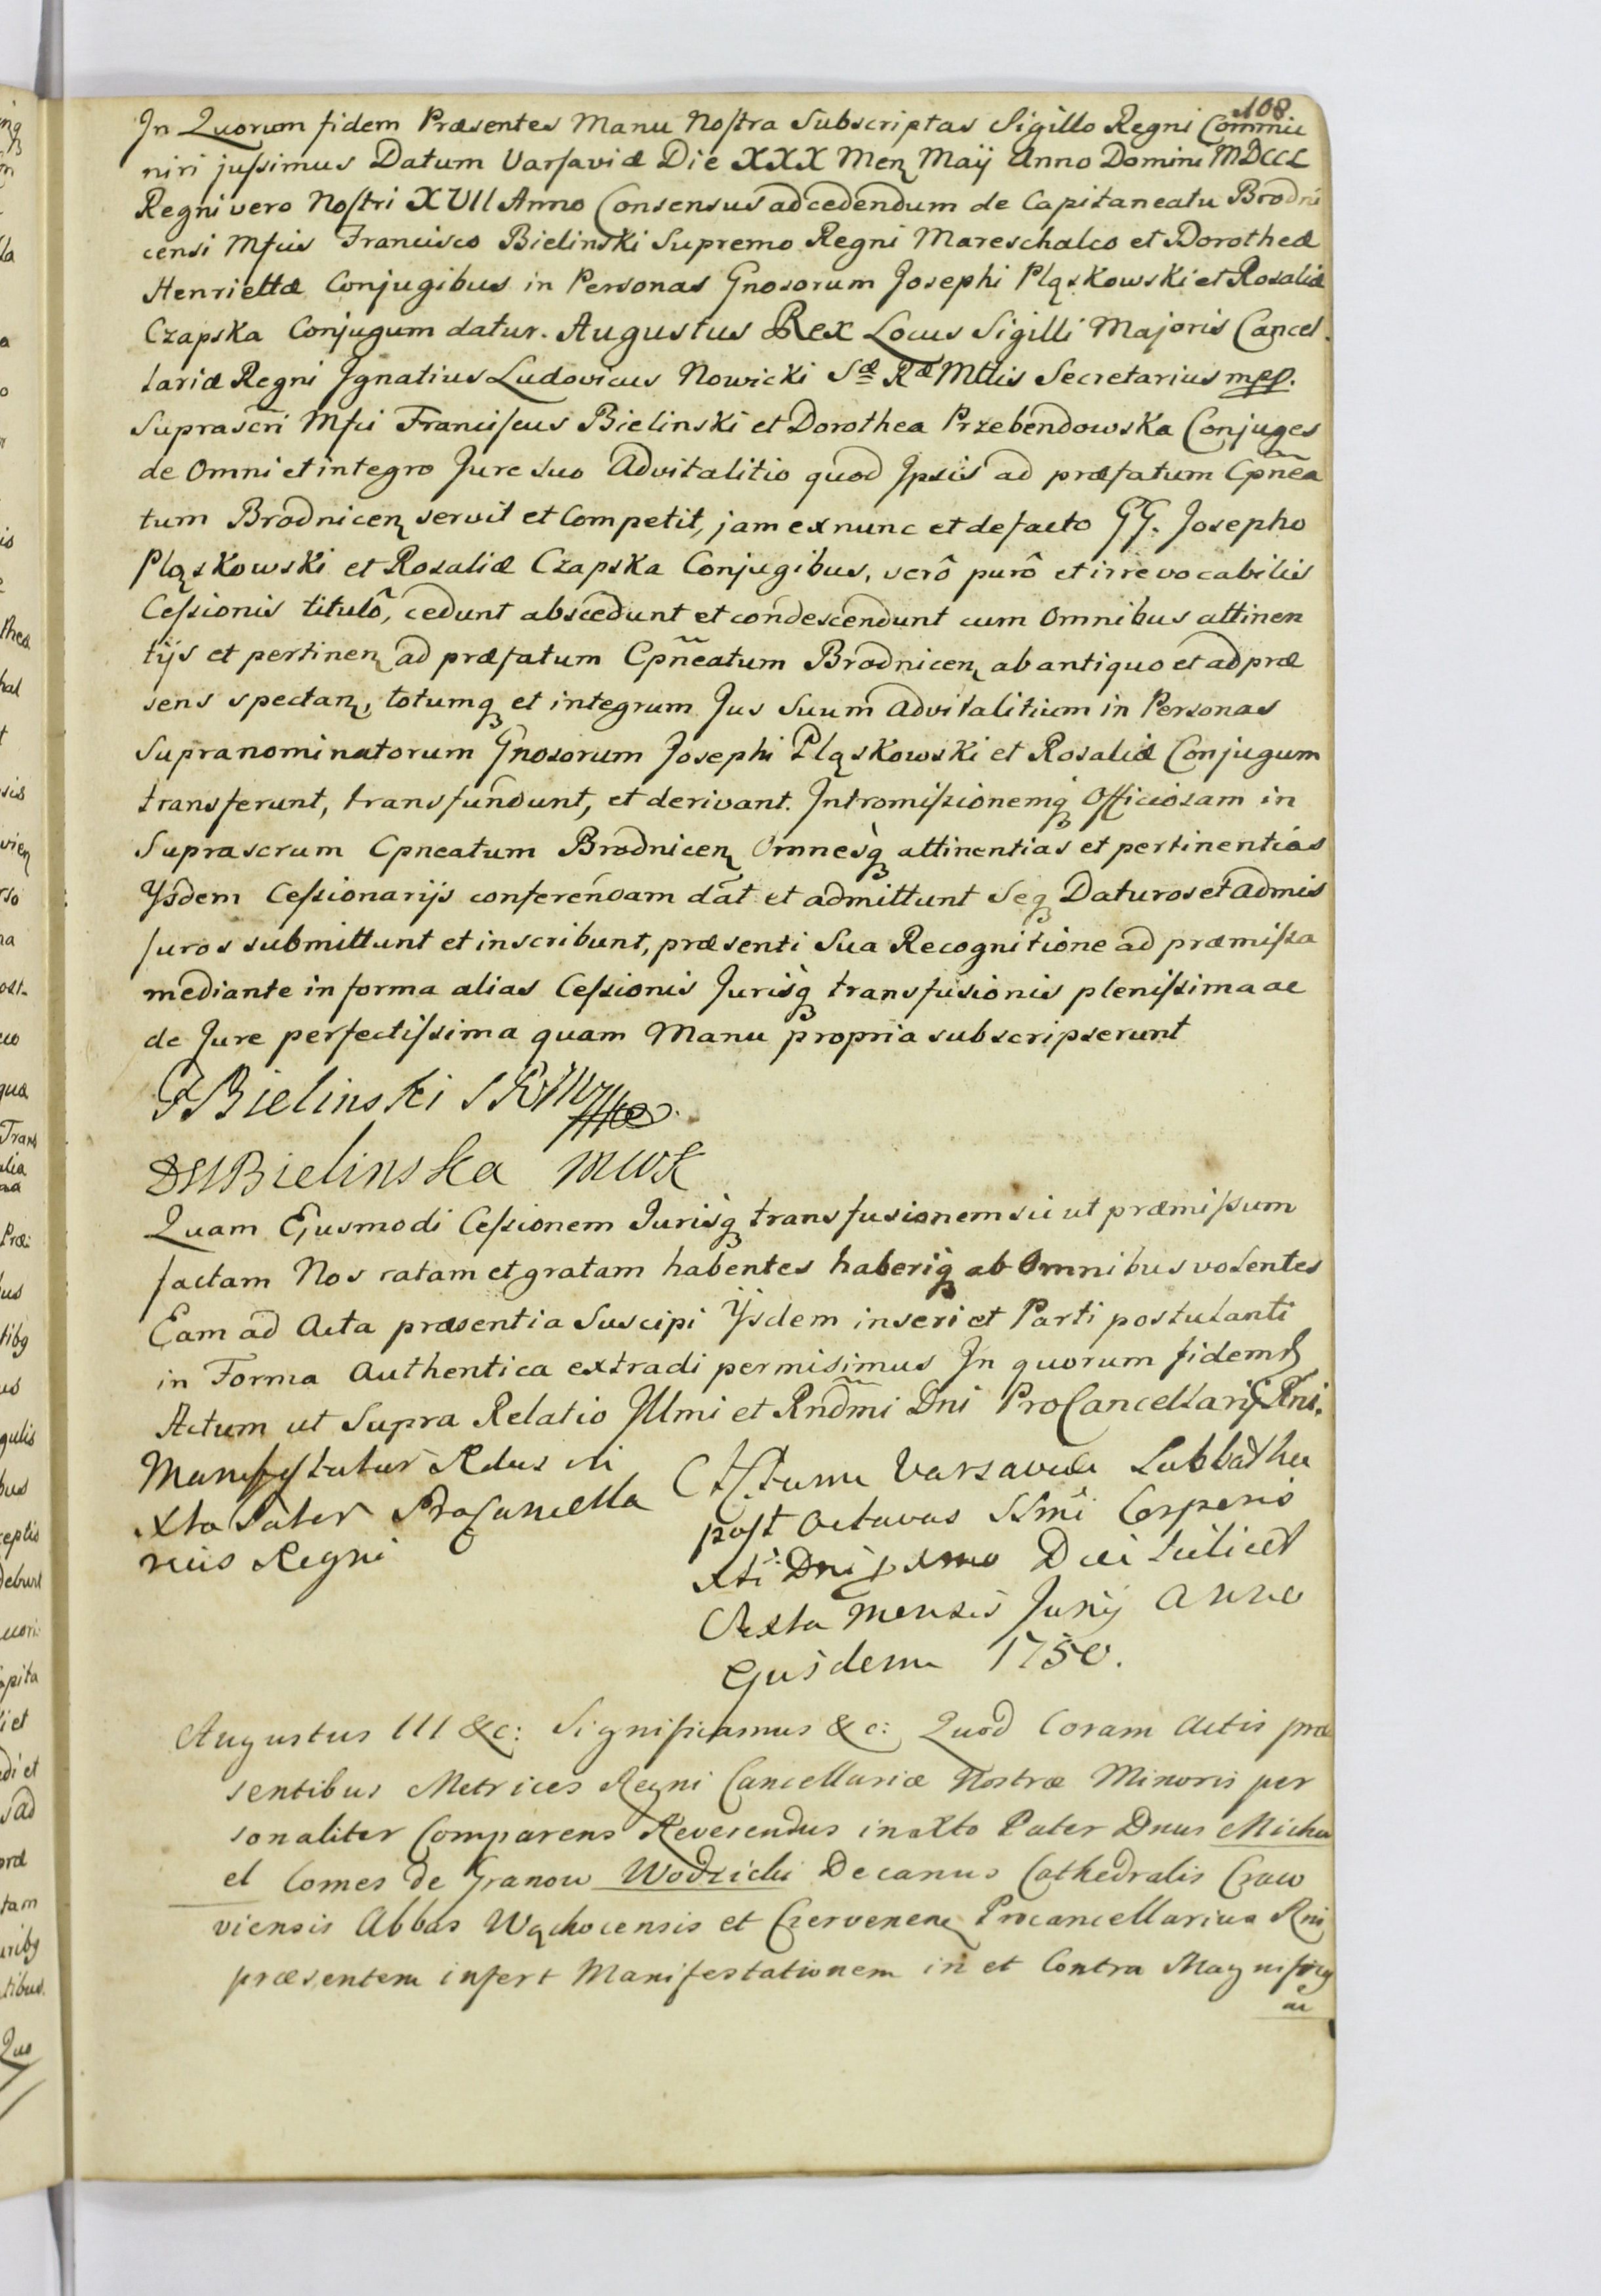 108
In Quorum fidem Præsentes Manu Nostra Subscriptas Sigillo Regni Commu
niri jussimus Datum Varsaviæ Die XXX Men Maij Anno Domini MDCCL
Regni vero Nostri XVII Anno Consensus ad cedendum de Capitaneatu Brodni
censi Mfcis Francisco Bielinski Supremo Regni Mareschalco et Dorotheæ
Henriettæ Conjugibus in Personas Gnosorum Josephi Pląskowski et Rosaliæ
Czapska Conjugum datur. Augustus Rex Locus Sigilli Majoris Cancel
lariæ Regni Ignatius Ludovicus Nowicki Sæ Ræ Mttis Secretarius mpp.
Suprascri Mfci Franciscus Bielinski et Dorothea Przebendowska Conjuges
de Omni et integro Jure suo Advitalitio quod Ipsis ad præfatum Cpnea
tum Brodnicen servit et Competit, jam ex nunc et de facto GG. Josepho
Pląskowski et Rosaliæ Czapska Conjugibus, verô purô et irrevocabilis
Cessionis titulô, cedunt abscedunt et condescendunt cum Omnibus attinen
tijs et pertinen ad præfatum Cpneatum Brodnicen ab antiquo et ad præ
sens spectan, totumq et integrum Jus Suum Advitalitium in Personas
Supranominatorum Gnosorum Josephi Pląskowski et Rosaliæ Conjugum
transferunt, transfundunt, et derivant. Intromissionemq Officiosam in
Suprascrum Cpneatum Brodnicen Omnesq attinentias et pertinentias
Ijsdem Cessionarijs conferendam dat et admittunt Seq Daturos et admis
suros submittunt et inscribunt, præsenti Sua Recognitione ad præmissa
mediante in forma alias Cessionis Jurisq transfusionis plenissima ac
de Jure perfectissima quam Manu propria subscripserunt
F Bielinski
DH Bielinska MWK
Quam Ejusmodi Cessionem Jurisq transfusionem sic ut præmissum
factam Nos ratam et gratam habentes haberiq ab Omnibus volentes
Eam ad Acta præsentia Suscipi Ijsdem inseri et Parti postulanti
in Forma Authentica extradi permisimus In quorum fidem
Actum ut Supra Relatio Illmi et Rndmi Dni ProCancellarij Rni.
Manifestatur Rdus in
xto Pater Procancella
rius Regni
Actum Varsaviæ Sabbatho
post Octavas SSmi Corporis
xti Dni Die scilicet
Sexta Mensis Junij Anno
Ejusdem 1750.
Augustus III &c: Significamus &c: Quod Coram Actis præ
sentibus Metrices Regni Cancellariæ Nostræ Minoris per
sonaliter Comparens Reverendus in Xto Pater Dnus Micha
el Comes de Granow Wodzicki Decanus Cathedralis Craco
viensis Abbas Wąchocensis et Czervenen Procancellarius Rni
præsentem infert Manifestationem in et Contra Magnificy
ac